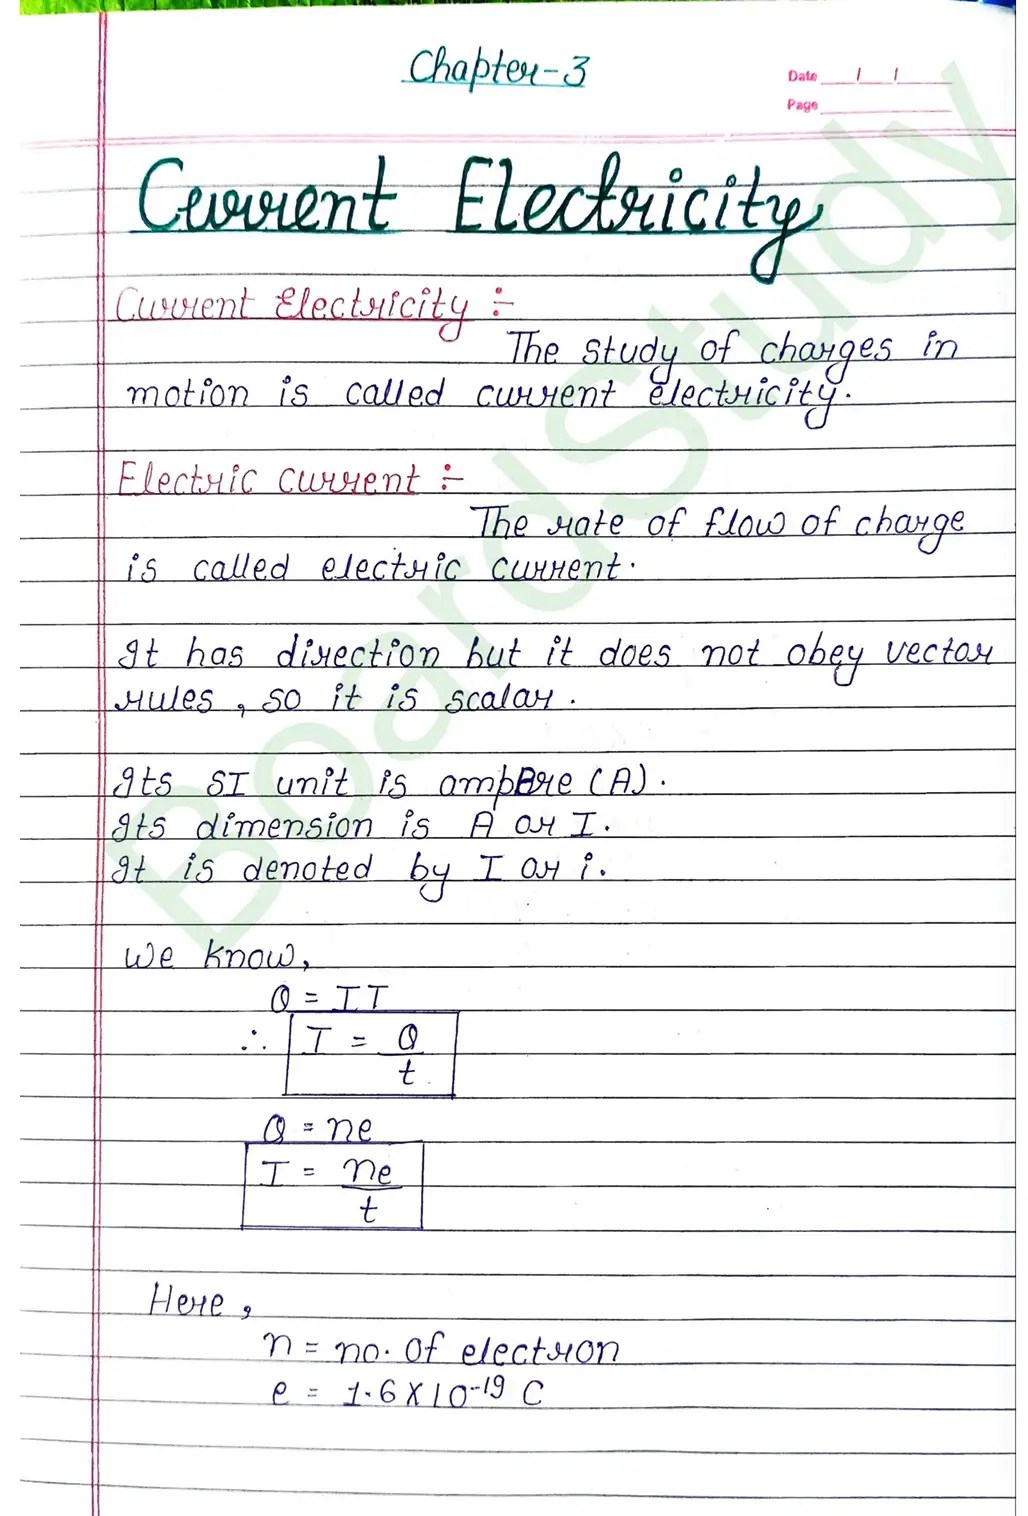 Chapter-3
Date
Page
Current Electricity
Current Electricity :-
The study of charges in
motion is called current electricity.
Electric current :-
The rate of flow of charge
is called electric current.
It has direction but it does not obey vector
rules, so it is scalar.
Its SI unit is ampere (A).
Its dimension is A or I.
It is denoted by I or i.
We know,
Q = IT
∴ I = Q
t
Q = ne
I = ne
t
Here,
n = no. of electron
e = 1.6 X 10⁻¹⁹ C
BoardStudy